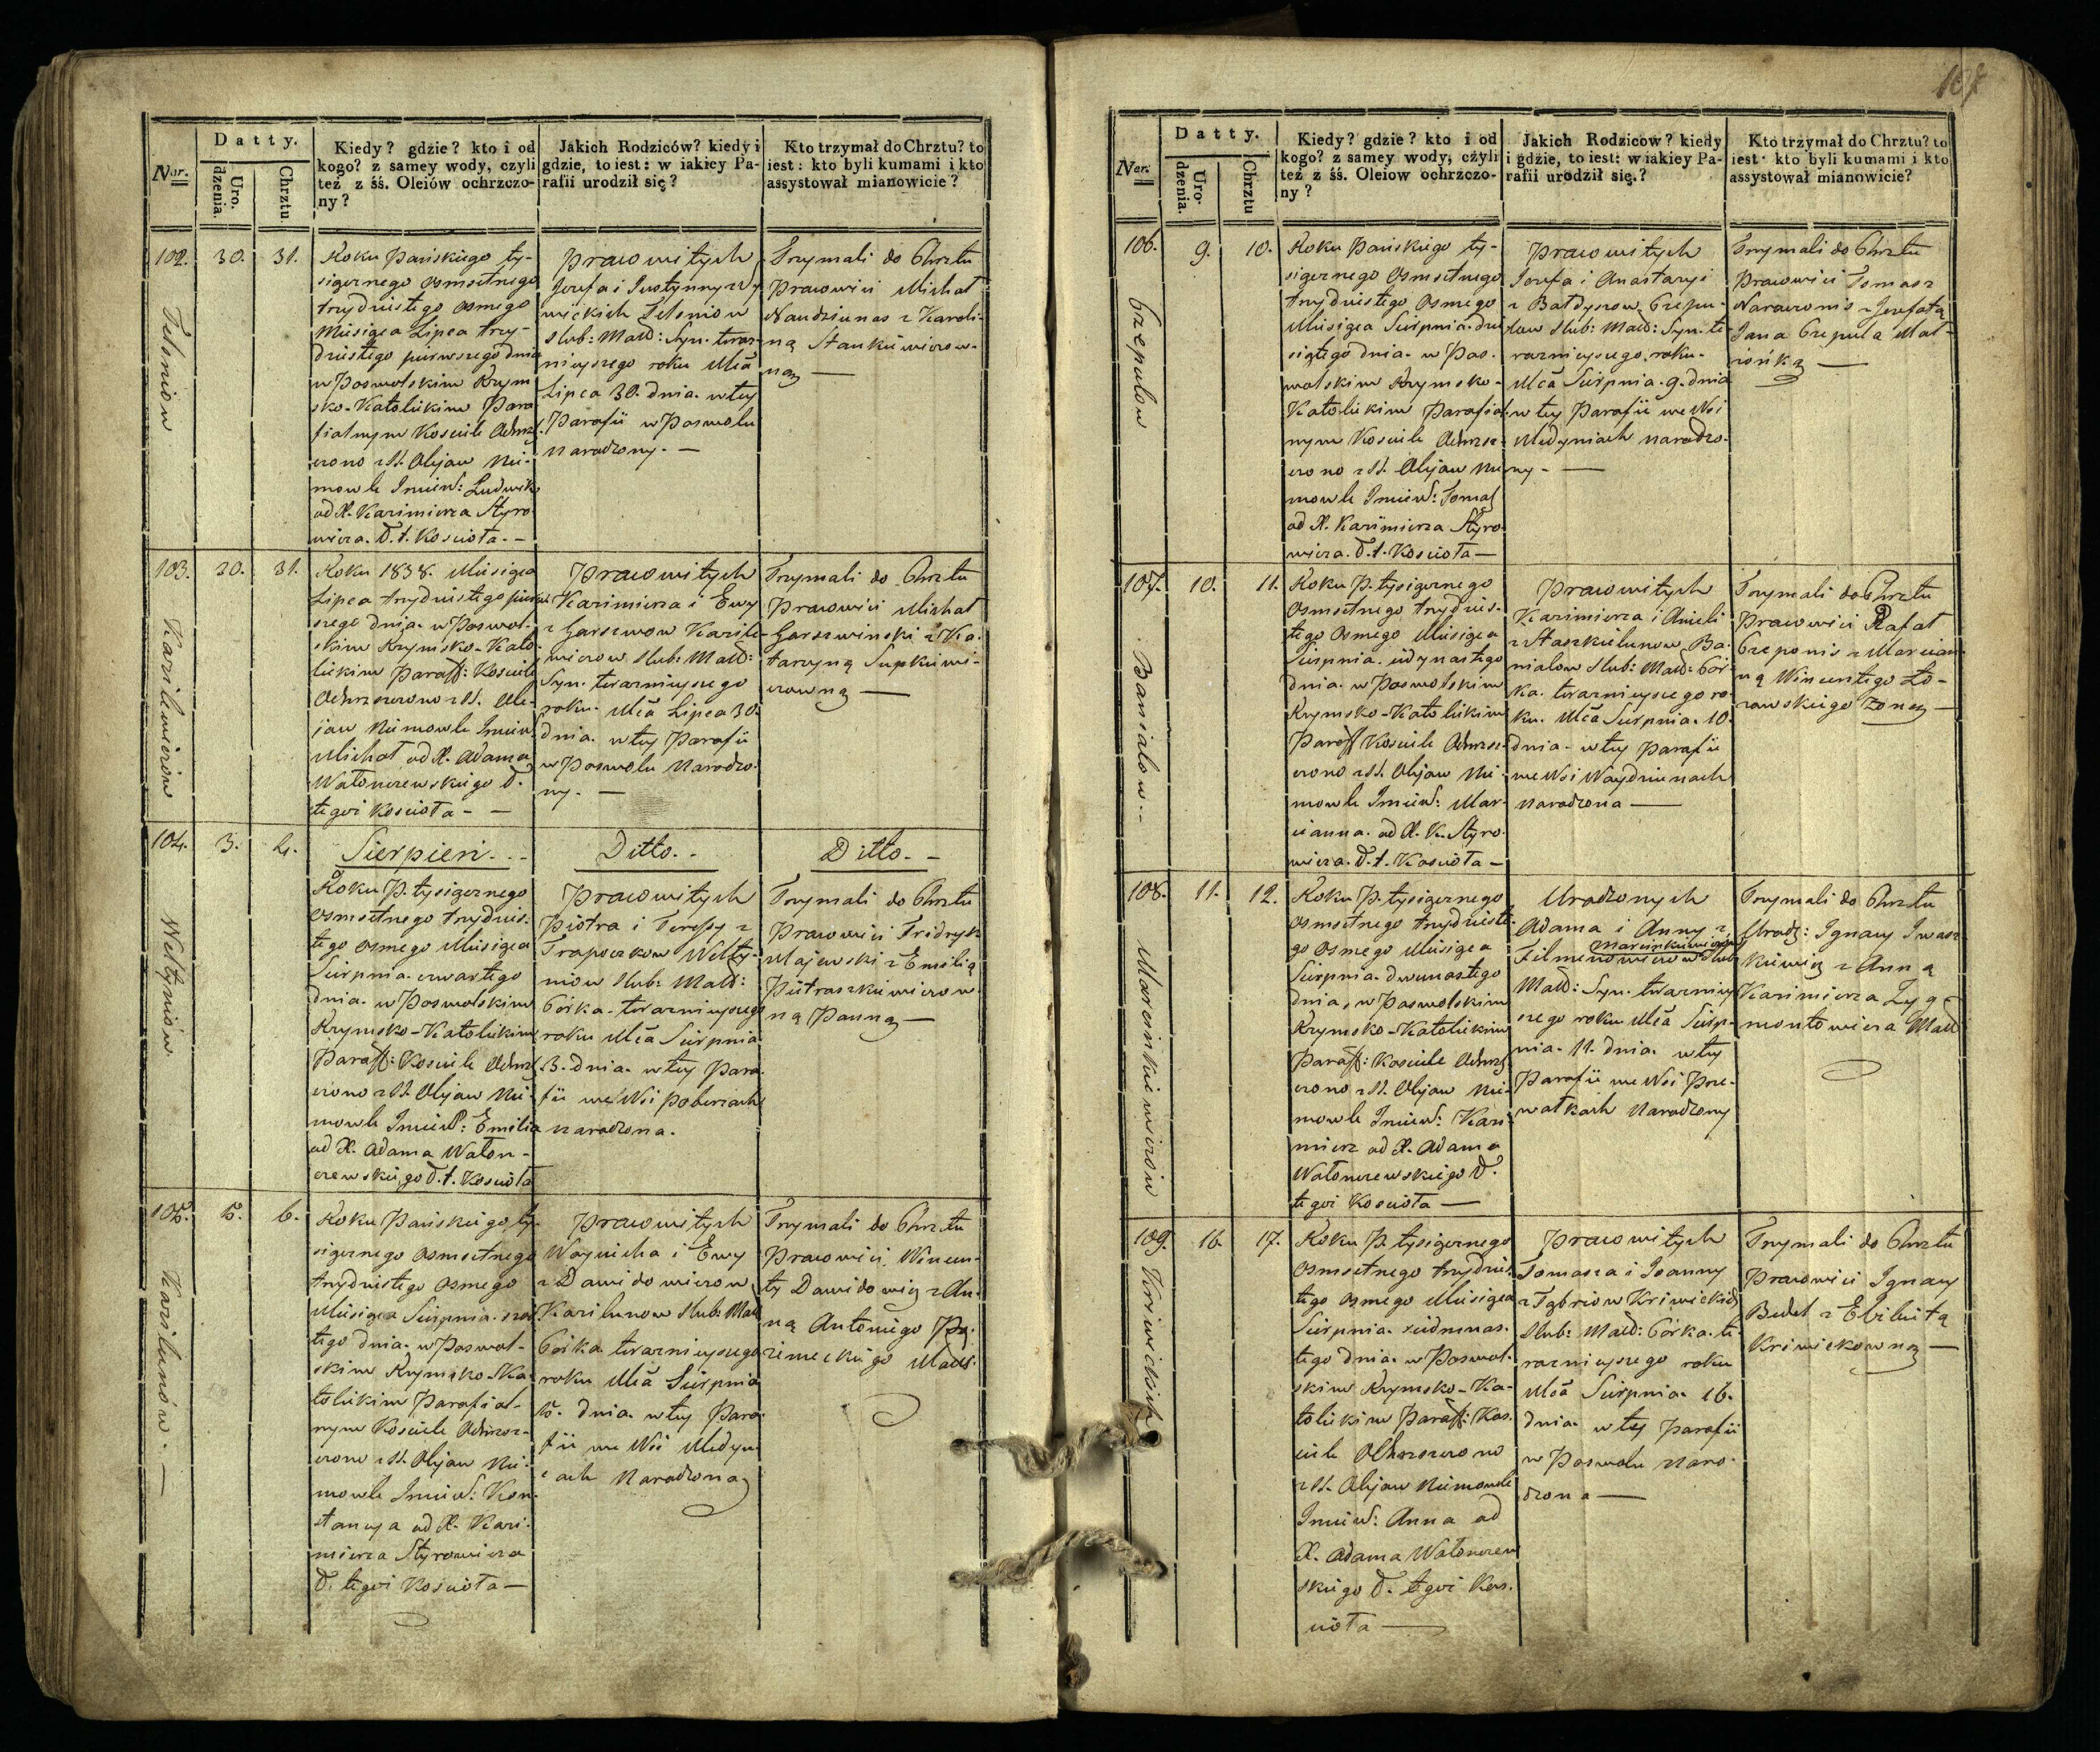 Nar.
Datty.
Uro-
dzenia.
Chrztu
Kiedy? gdzie? kto i od
kogo? z samey wody, czyli
też z śś. Oleiów ochrzczo-
ny?
Jakich Rodziców? kiedy i
gdzie, to iest: w iakiey Pa-
rafii urodził się?
Kto trzymał do Chrztu? to
iest: kto byli kumami i kto
assystował mianowicie?
102.
30.
31.
Roku Pańskiego ty-
siącznego osmsetnego
trzydziestego osmego
Miesiąca Lipca trzy-
dziestego pierwszego dnia
w Poswolskim Rzym
sko-Katolickim Para
fialnym Kościele Ochrz
czono z SS. Olejów Nie-
mowle Imien: Ludwik
od X. Kazimierza Styro
wicza. D. t. Kościoła. -
Prawowitych
Jozefa i Justynny z
Slub: Małż: Syn. teraz-
nieyszego roku Mcā
Lipca 30. dnia. w tey
Parafii w Poswolu
Narodzony. -
Trzymali do Chrztu
Prawowici Michał
z Karoli-
ną Stankiewiczow-
ną
103.
30.
31.
Kazilewiczów
Roku 1838. Miesiąca
Lipca trzydziestego pierw
szego dnia. w Poswol-
skim Rzymsko-Kato-
lickim Paraff: Kościele
Ochrzczono z SS. Ole-
jów Niemowle Imien
Michał od X. Adama
Walonczewskiego D.
tegoż Kościoła -
Prawowitych
Kazimierza i Ewy
z Garszwow Kazile-
wiczow Slub: Małż:
Syn. teraznieyszego
roku. Mcā Lipca 30.
dnia. w tey Parafii
w Poswolu Narodzo-
ny. -
Trzymali do Chrztu
Prawowici Michał
Garszwinski z Ka-
tarzyną Supkiewi-
czowną
104.
3.
4.
Weltyniów
Sierpień. -
Ditto. -
Ditto. -
Roku P. tysiącznego
osmsetnego trzydzies-
tego osmego Miesiąca
Sierpnia. czwartego
dnia. w Poswolskim
Rzymsko-Katolickim
Paraff: Kościele Ochrz
czono z SS. Olejów Nie-
mowle Imien: Emilia
od X. Adama Walon-
czewskiego D. t. Kościoła
Prawowitych
Piotra i Teressy z
Trapszkow Welty-
niow Slub: Małż:
Córka. teraznieyszego
roku Mcā Sierpnia
3. dnia. w tey Para-
fii we Wsi Poberzach
narodzona.
Trzymali do Chrztu
Prawowici Fridryk
Majewski z Emilią
Pietraszkiewiczow-
ną Panną
105.
5.
6.
Kazilunów. -
Roku Pańskiego ty-
siącznego osmsetnego
trzydziestego osmego
Miesiąca Sierpnia. szos
tego dnia. w Poswol-
skim Rzymsko-Ka-
tolickim Parafial-
nym Kościele Ochrz-
czono z SS. Olejów Nie-
mowle Imien: Kon-
stancya od X. Kazi-
mierza Styrowicza
D. tegoż Kościoła -
Prawowitych
Woyciecha i Ewy
z Dawidowiczow
Kazilunow Slub: Małż
Córka teraznieyszego
roku Mcā Sierpnia
5. dnia. w tey Para-
fii we Wsi Medyn-
iach Narodzona
Trzymali do Chrztu
Prawowici. Wincen-
ty Dawidowicz z An-
ną Antoniego
Małż.
107
Nar.
Datty.
Uro-
dzenia.
Chrztu
Kiedy? gdzie? kto i od
kogo? z samey wody, czyli
też z śś. Oleiow ochrzczo-
ny?
Jakich Rodziców? kiedy
i gdzie, to iest: w iakiey Pa-
rafii urodził się?
Kto trzymał do Chrztu? to
iest: kto byli kumami i kto
assystował mianowicie?
106.
9.
10.
Czepulow
Roku Pańskiego ty-
siącznego Osmsetnego
trzydziestego Osmego
Miesiąca Sierpnia. dzie
siątego dnia. w Pos-
wolskim Rzymsko-
Katolickim Parafial-
nym Kościele Ochrz-
czono z SS. Olejów Nie
mowle Imien: Tomasz
od X. Kazimierza Styro
wicza. D. t. Kościoła -
Prawowitych
Jozefa i Anastazyi
z Baldyszow Czepu-
low Slub: Małż: Syn. te
raznieyszego. roku.
Mcā Sierpnia. 9. dnia
w tey Parafii we Wsi
Medyniach narodzo-
ny. -
Trzymali do Chrztu
Prawowici Tomasz
z Jozefatą
Jana Czepula Mał-
żonką
107.
10.
11.
Banialow. -
Roku P. tysiącznego
Osmsetnego trzydzies-
tego Osmego Miesiąca
Sierpnia. iedynastego
dnia. w Poswolskim
Rzymsko-Katolickim
Paraff Kościele Ochrz-
czono z SS. Olejów Nie-
mowle Imien: Mar-
cianna. od X. K. Styro-
wicza. D. t. Kościoła -
Prawowitych
Kazimierza i Anieli
z Staszkielunow Ba-
nialow Slub: Małż: Cór
ka. teraznieyszego ro-
ku. Mcā Sierpnia. 10.
dnia. w tey Parafii
we Wsi Woydziunach
narodzona
Trzymali do Chrztu
Prawowici Rafał
Czeponis z Marcian-
ną Wincentego Ło-
zowskiego Zoną
108.
11.
12.
Marcinkiewiczów
Roku P. tysiącznego
osmsetnego trzydzieste-
go osmego Miesiąca
Sierpnia. dwunastego
dnia, w Poswolskim
Rzymsko-Katolickim
Paraff: Kościele Ochrz
czono z SS. Olejów Nie-
mowle Imien: Kazi
mierz od X. Adama
Walonczewskiego D.
tegoż Kościoła -
Urodzonych
Adama i Anny z
Marcinkiewiczow
Filmenowiczow Slub
Małż: Syn. terazniey
szego roku Mcā Sierp-
nia. 11. dnia. w tey
Parafii we Wsi Prze-
walkach Narodzony
Trzymali do Chrztu
Urodz: Ignacy Iwasz-
kiewicz z Anną
Kazimierza Zyg-
montowicza Małż
109.
16.
17.
Kriwickich
Roku P. tysiącznego
osmsetnego trzydzies-
tego osmego Miesiąca
Sierpnia. siedmnas-
tego dnia. w Poswol-
skim Rzymsko-Ka-
tolickim Paraff: Kos-
ciele Ochrzczono
z SS. Olejów Niemowle
Imien: Anna od
X. Adama Walonczew
skiego D. tegoż Kos-
cioła
Prawowitych
Tomasza i Joanny
Kriwickich
Slub: Małż: Córka. te-
raznieyszego roku
Mcā Sierpnia. 16.
dnia. w tey Parafii
w Poswolu naro-
dzona
Trzymali do Chrztu
Prawowici Ignacy
Budel z Elzbietą
Kriwickowną